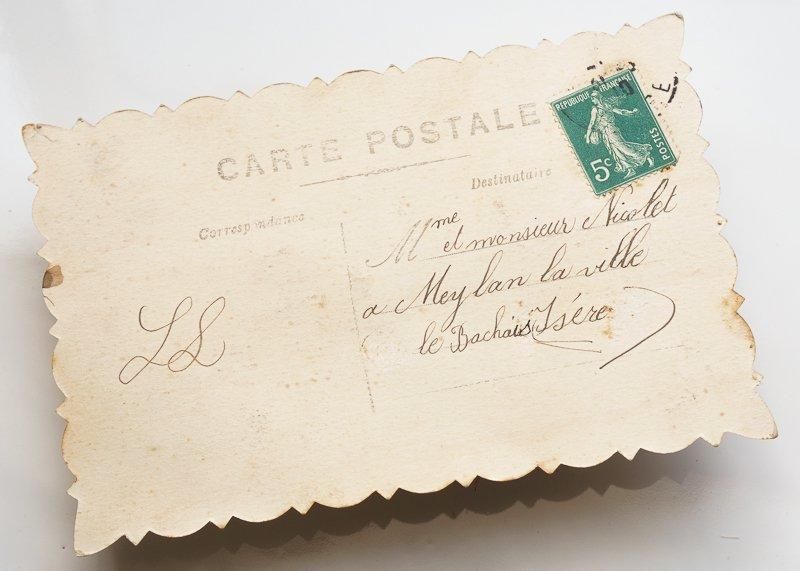 CARTE POSTALE
RÉPUBLIQUE FRANÇAISE
5c
POSTES
E
Correspondance
Destinataire
Mme
et monsieur Nicolet
a Meylan la ville
le Bachais Isére
LS